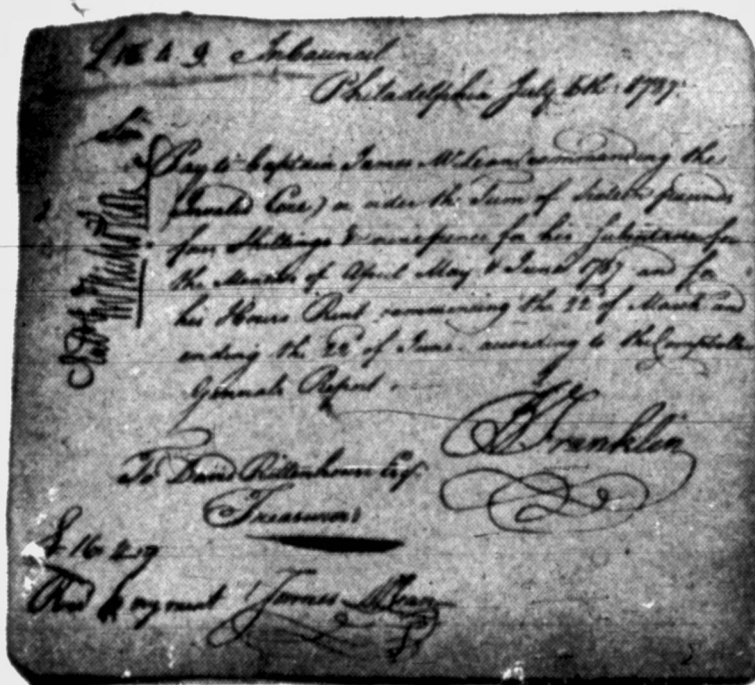 £16 4 9 In Council
Philadelphia July 6th 1787.
Sir
Pay to Captain James McLean (commanding the
Invalid Core) or order the Sum of Sixteen pounds
four Shillings & ninepence for his Subsistance for
the Months of April May & June 1787 and for
his House Rent commencing the 22d of March and
ending the 22d of June according to the Comptroller
Generals Report.
B Franklin
To David Rittenhouse Esqr.
Treasurer
£16 4 9
James McLean